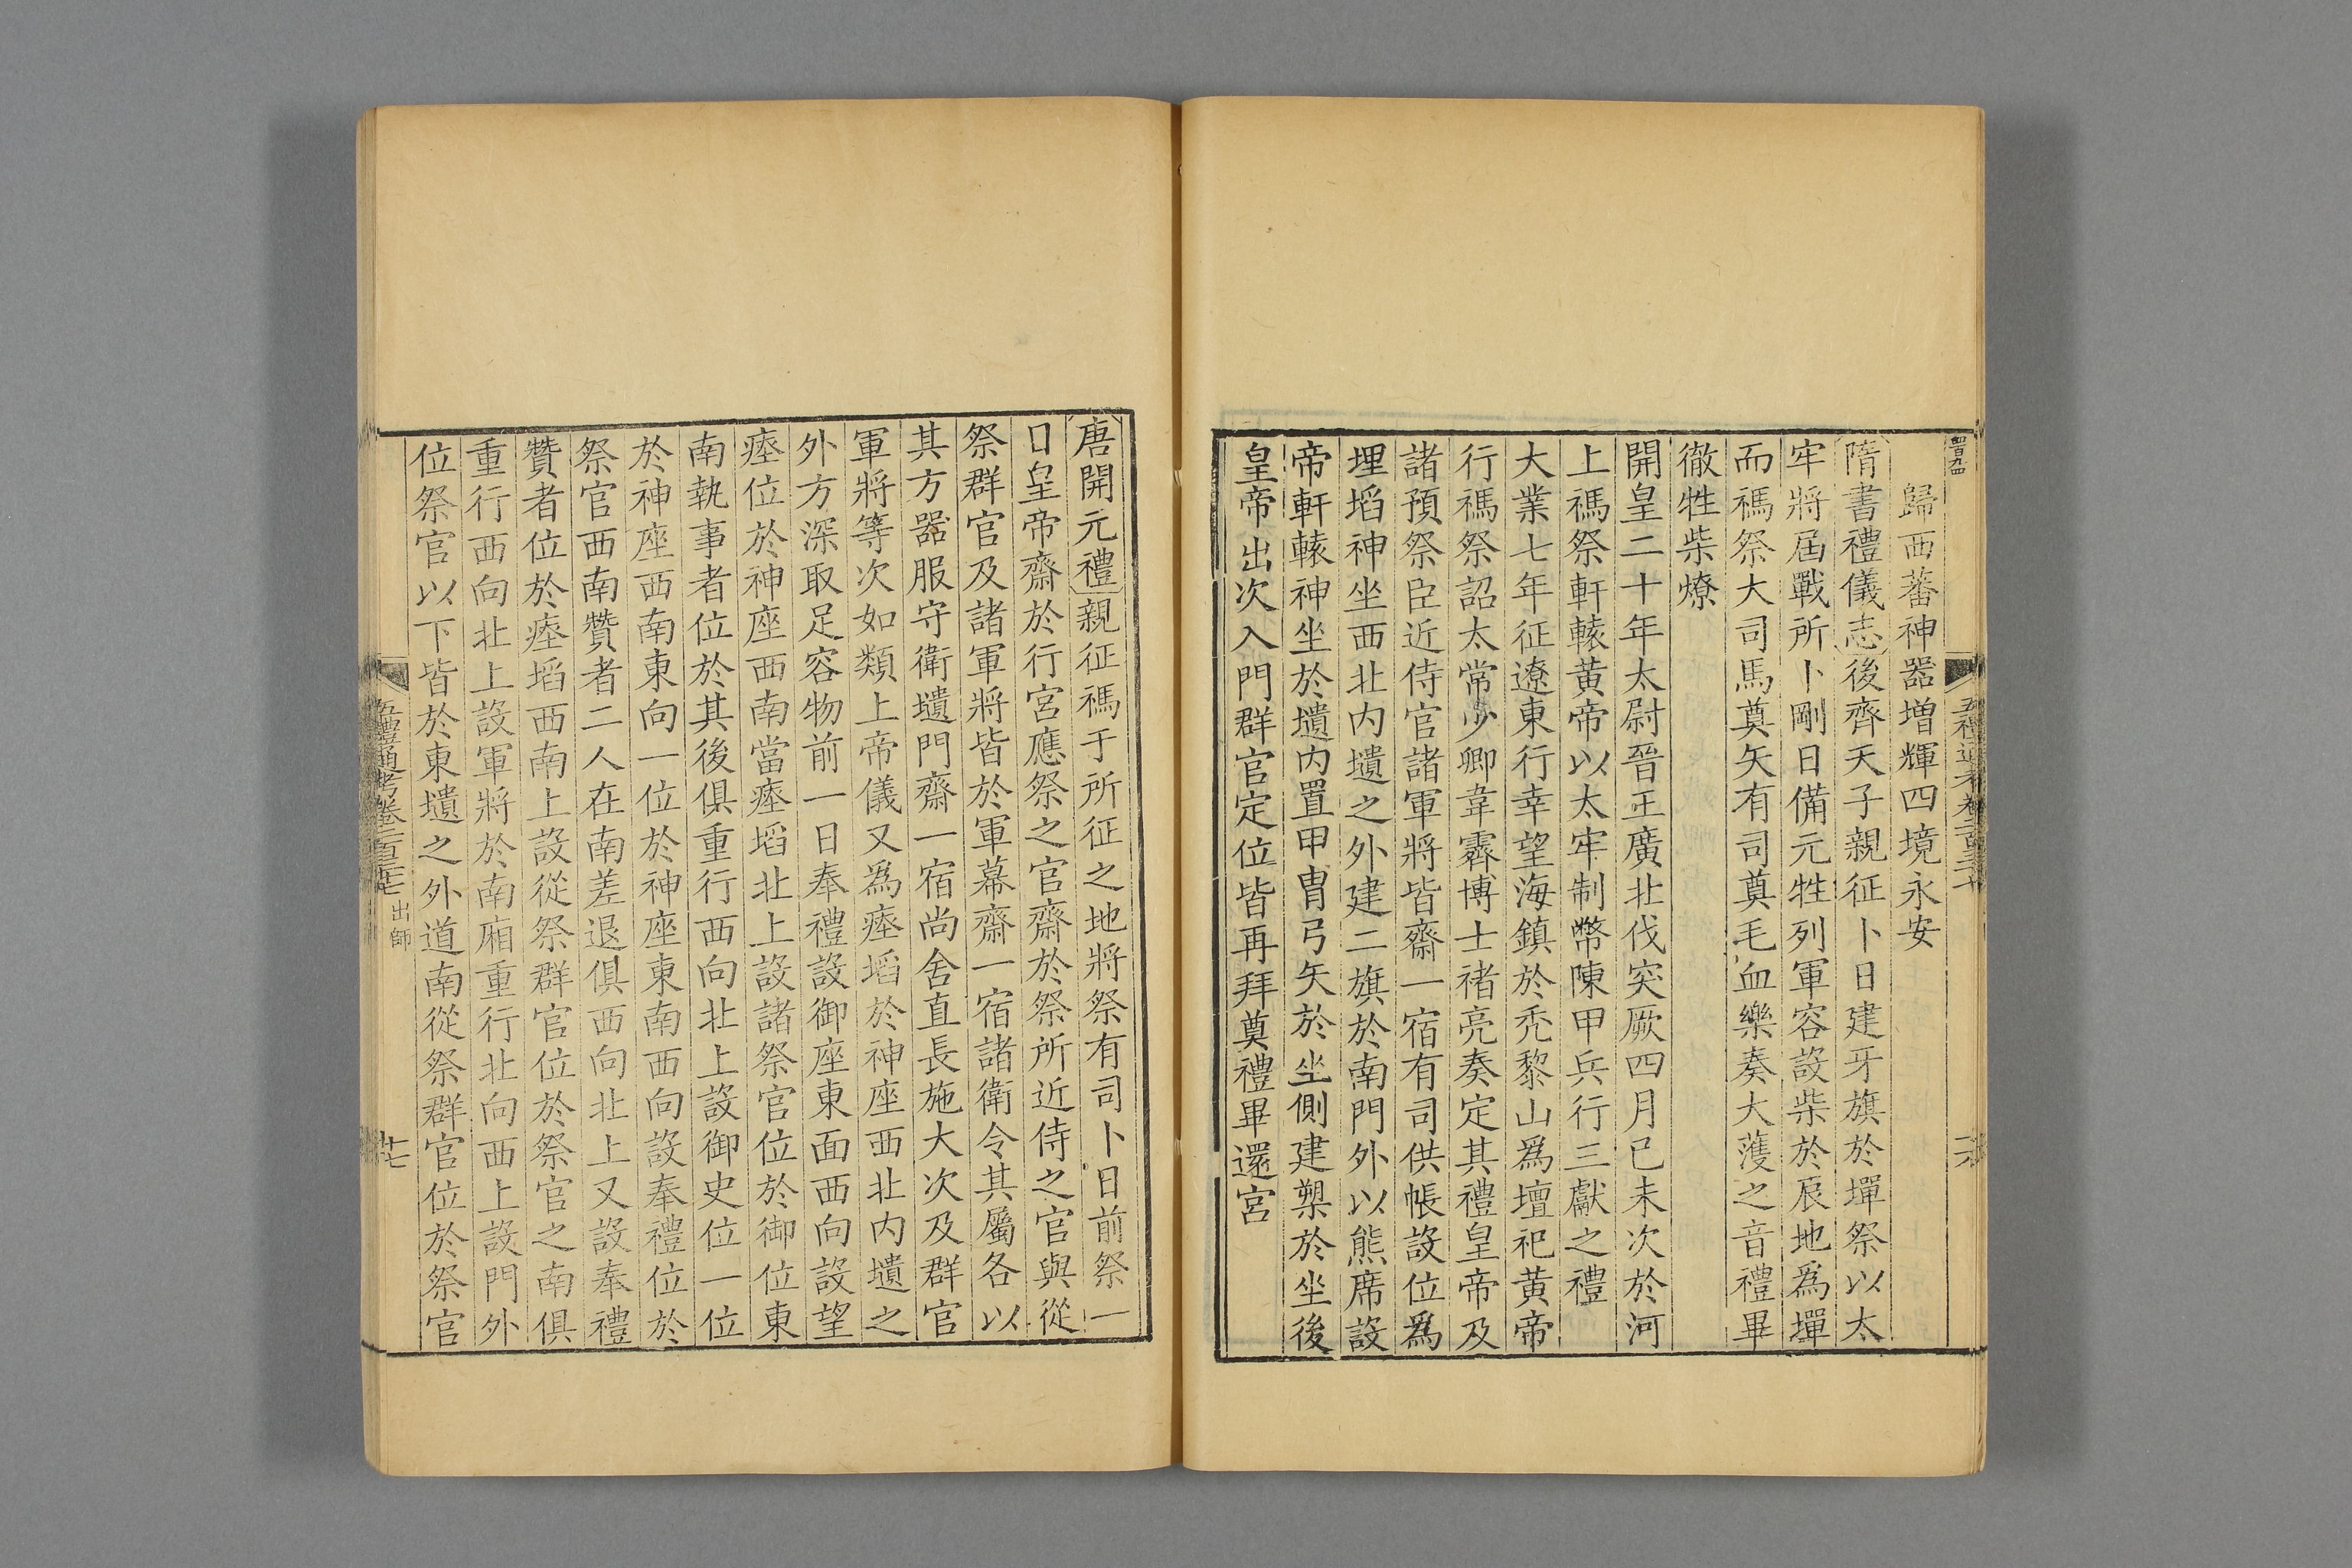 歸西蕃神器増輝四境永安
隋書禮儀志後齊天子親征卜日建牙旗於墠祭以太
牢將屆戰所卜剛日備元牲列軍容設柴於辰地爲墠
而禡祭大司馬奠矢有司奠毛血樂奏大濩之音禮畢
徹牲柴燎
開皇二十年太尉晉王廣北伐突厥四月己未次於河
上禡祭軒轅黃帝以太牢制幣陳甲兵行三獻之禮
大業七年征遼東行幸望海鎮於禿黎山爲壇祀黃帝
行禡祭詔太常少卿韋霽博士褚亮奏定其禮皇帝及
諸預祭臣近侍官諸軍將皆齋一宿有司供帳設位爲
埋埳神坐西北内壝之外建二旗於南門外以熊席設
帝軒轅神坐於壝内置甲胄弓矢於坐側建槊於坐後
皇帝出次入門群官定位皆再拜奠禮畢還宮
唐開元禮親征禡于所征之地將祭有司卜日前祭一
日皇帝齋於行宮應祭之官齋於祭所近侍之官與從
祭群官及諸軍將皆於軍幕齋一宿諸衛令其屬各以
其方器服守衛壝門齋一宿尚舍直長施大次及群官
軍將等次如類上帝儀又爲瘞埳於神座西北内壝之
外方深取足容物前一日奉禮設御座東面西向設望
瘞位於神座西南當瘞埳北上設諸祭官位於御位東
南執事者位於其後俱重行西向北上設御史位一位
於神座西南東向一位於神座東南西向設奉禮位於
祭官西南贊者二人在南差退俱西向北上又設奉禮
贊者位於瘞埳西南上設從祭群官位於祭官之南俱
重行西向北上設軍將於南廂重行北向西上設門外
位祭官以下皆於東壝之外道南從祭群官位於祭官
五禮通考卷二百三十七
出師
十七